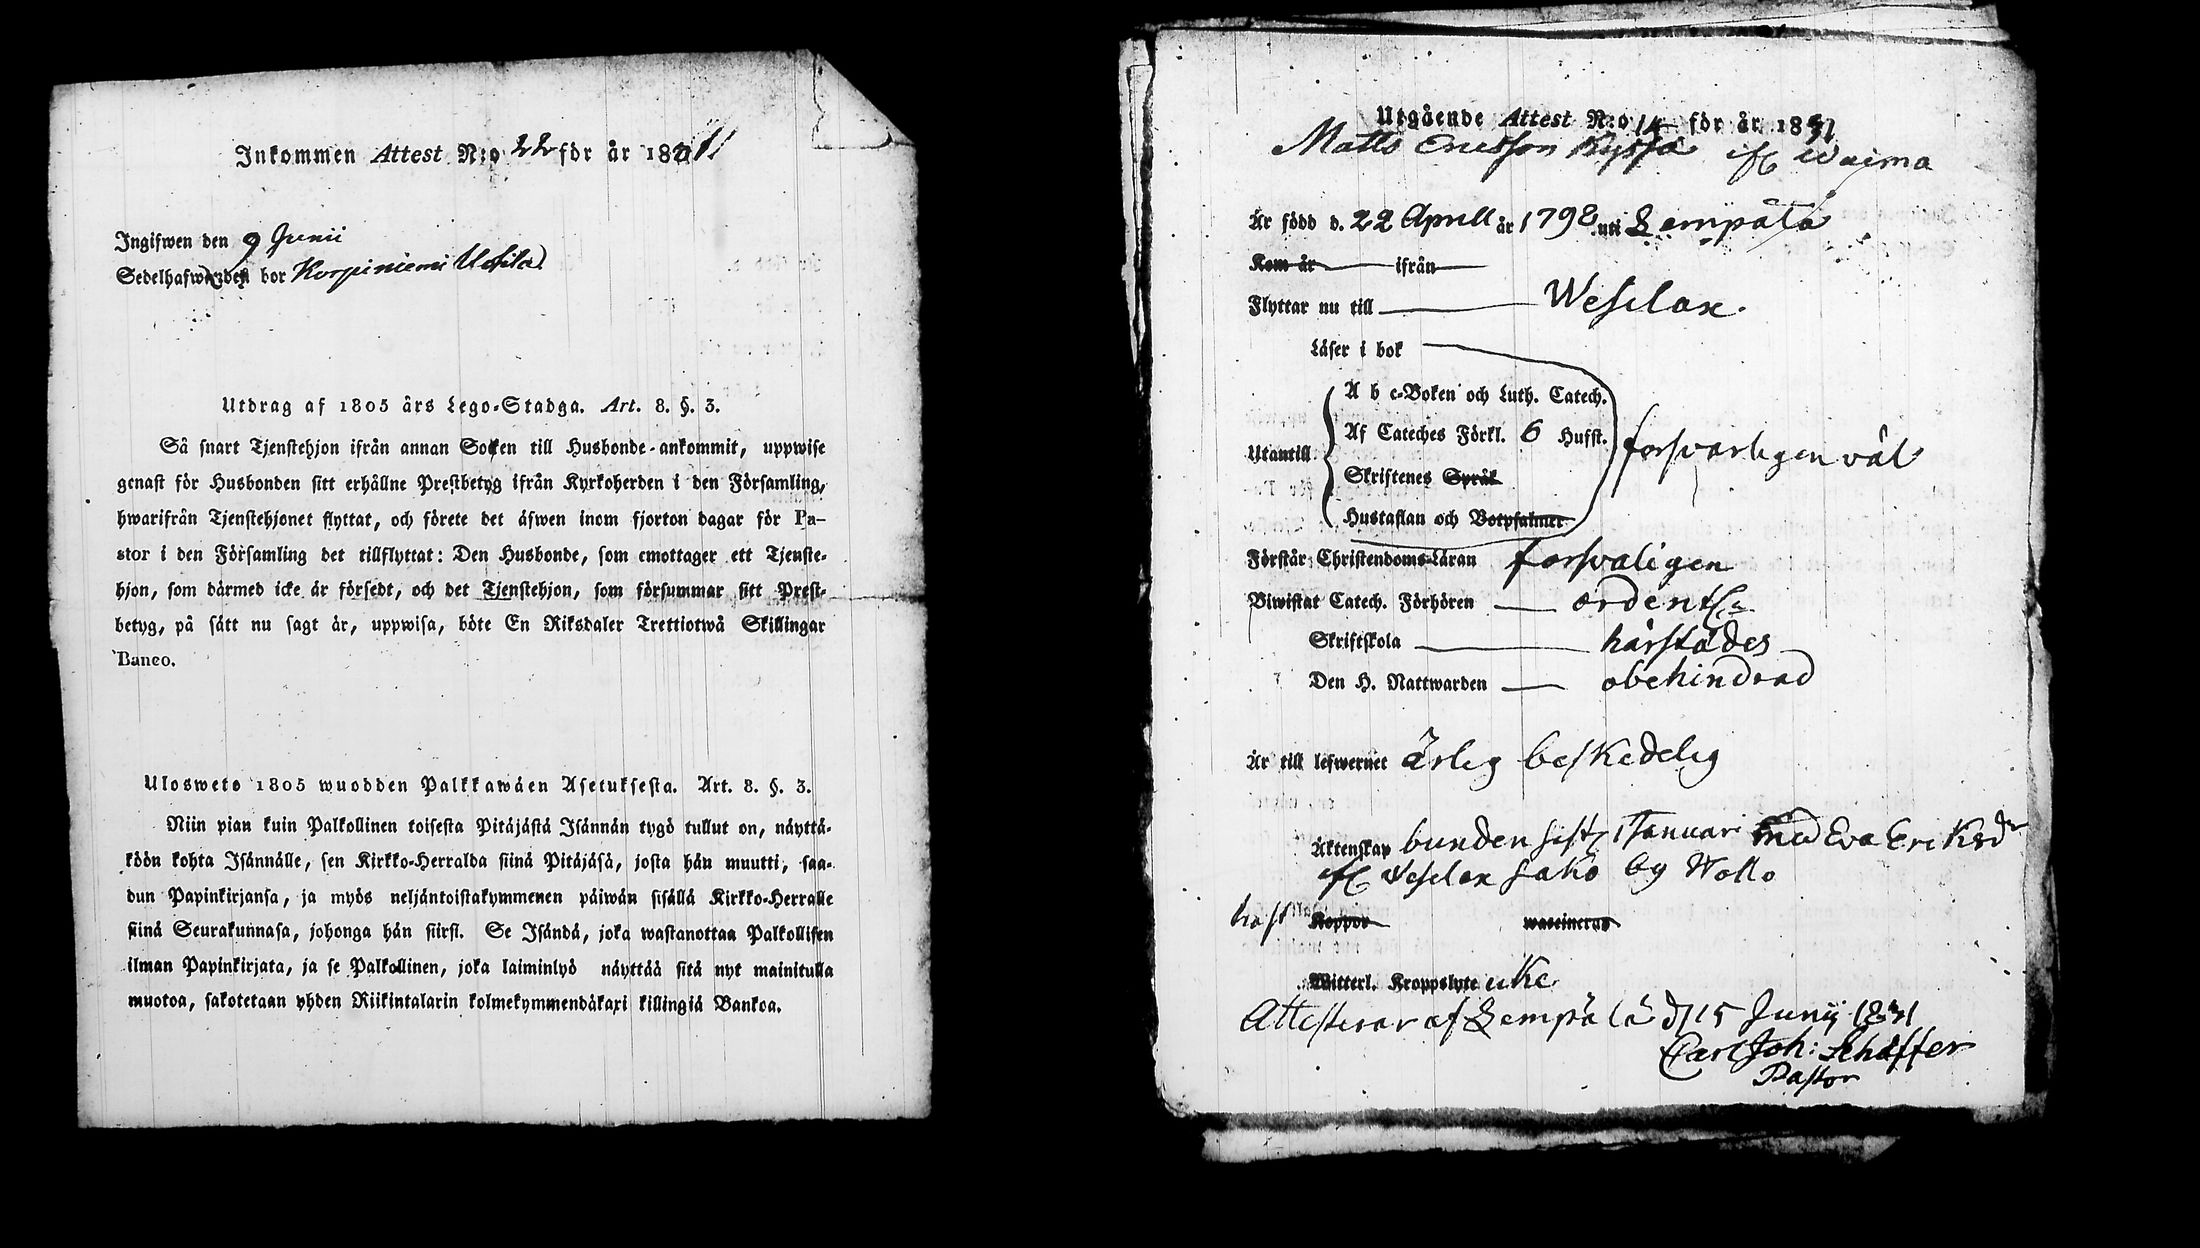 Inkommen Attest N:o 22 för år 18
Ingifwen den 9 Junii
Sedelhafwanden bor Korpiniemi
Utdrag af 1805 års Lego-Stadga. Art. 8. §. 3.
Så snart Tjenstehjon ifrån annan Socken till Husbonde-ankommit, uppwise
genast för Husbonden sitt erhållne Prestbetyg ifrån Kyrkoherden i den Församling,
hwarifrån Tjenstehjonet flyttat, och förete det äfwen inom fjorton dagar för Pa-
stor i den Församling det tillflyttat: Den Husbonde, som emottager ett Tjenste-
hjon, som därmed icke är försedt, och det Tjenstehjon, som försummar sitt Prest-
betyg, på sätt nu sagt är, uppwisa, böte En Riksdaler Trettiotwå Skillingar
Banco.
Ulosweto 1805 wuodden Palkkawäen Asetuksesta. Art. 8. §. 3.
Niin pian kuin Palkollinen toisesta Pitäjästä Isännän tygö tullut on, näyttä-
köön kohta Isännälle, sen Kirkko-Herralda siinä Pitäjäsä, josta hän muutti, saa-
dun Papinkirjansa, ja myös neljäntoistakymmenen päiwän sisällä Kirkko-Herralle
siinä Seurakunnasa, johonga hän siirsi. Se Isändä, joka wastanottaa Palkollisen
ilman Papinkirjata, ja se Palkollinen, joka laiminlyö näyttää sitä nyt mainitulla
muotoa, sakotetaan yhden Riikintalarin kolmekymmendäkaxi killingiä Bankoa.
Utgående Attest N:o 14 för år 1831
Matts Ericsson if Waima
Är född d. 22 Aprill år 1798 uti Lempälä
Kom år ifrån
Flyttar nu till Wesilax.
Läser i bok
A b c-Boken och Luth. Catech.
Af Cateches Förkl. 6 Hufst.
Utantill försvarligen väl
Skriftenes Språk
Hustaflan och Botpsalmer
Förstår Christendoms-Läran forsvaligen
Biwistat Catech. Förhören ordentl:
Skriftskola härstädes
Den H. Nattwarden obehindrad
Är till lefwernet ärlig beskedelig
Äktenskap bunden sistl. Januari med Eva Eriksdr
if Wesilax Sako by Wollo
haft Koppor waccinerad
Witterl. Kroppslyte icke
Attesterar af Lempälä d 15 Junij 1831
Carl Joh: Schäffer
Pastor